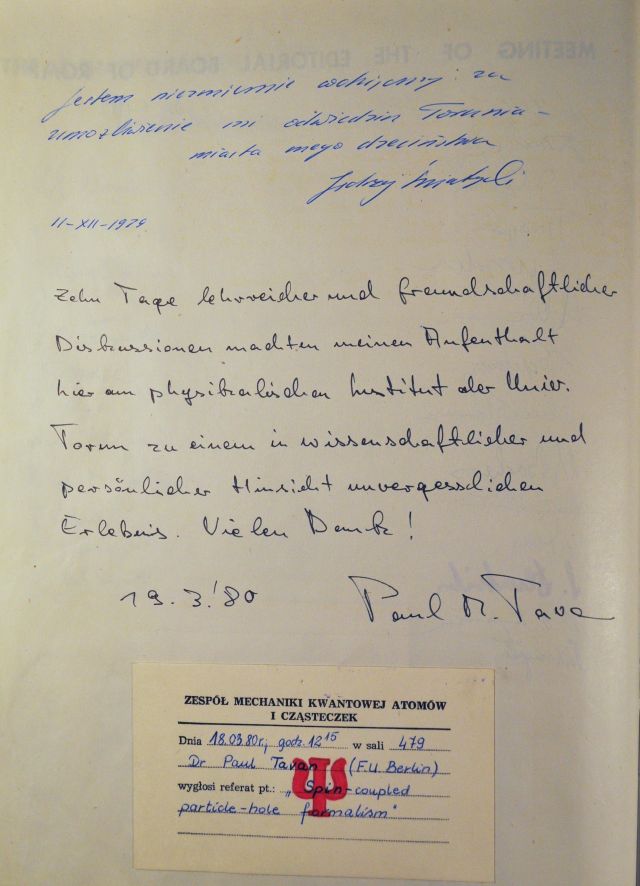 MEETING OF THE EDITORIAL BOARD OF
Jestem niezmiernie wdzięczny za
umożliwienie mi odwiedzin Torunia –
miasta mego dzieciństwa
11-XII-1979
Zehn Tage lehrreicher und freundschaftlicher
Diskussionen machten meinen Aufenthalt
hier am physikalischen Institut der Univ.
Torun zu einem in wissenschaftlicher und
persönlicher Hinsicht unvergesslichen
Erlebnis. Vielen Dank!
19.3.'80 Paul M. Tavan
ZESPÓŁ MECHANIKI KWANTOWEJ ATOMÓW
I CZĄSTECZEK
Dnia 18.03.80r, godz. 12 15 w sali 479
Dr Paul Tavan (F.U. Berlin)
wygłosi referat pt.: „Spin-coupled
particle-hole formalism"